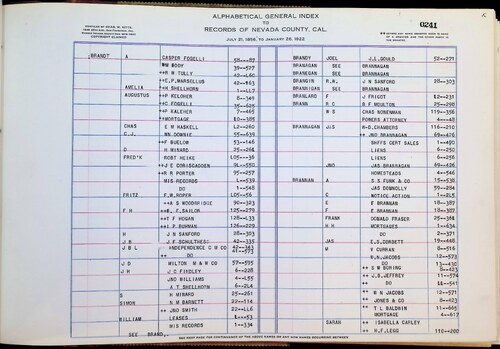 ALPHABETICAL GENERAL INDEX
TO
RECORDS OF NEVADA COUNTY, CAL.
JULY 21, 1856, TO JANUARY 29, 1922
0241
BRANDT A CASPER FOGELLI 58
WM BODY 39—527
++R W TULLY 43—480
++C.P.MARSELLUS 42—463
AMELIA ++H SHELLHORN
AUGUSTUS ++P KELOHER 8—349
++C FOGELLI 39—605
++P KALEHER 7—465
++MORTGAGE 10—305
CHAS E M HASKELL 12—260
C.J. WN.DONNIE 55—639
++F BUELOW 53—146
D H MINARD 25—264
FRED'K ROBT HEIKE 105—36
++J E CORISGADDEN 94—550
++R R PORTER 95—257
MIS RECORDS 1—539
DO 1—548
FRITZ E.W.ROPER 105—56
++A S WOODBRIDGE 90—323
F H ++W. F.SAILOR 125—279
++T F HOGAN 128—433
++A P BUHMAN 126—229
H J N SANFORD 28—303
J B J.F SCHULTHESS 42—335
J B L INDEPENDENCE C M CO 42—341
++ DO 41—573
J D MILTON M & W CO 57—595
J H J C FINDLEY 6—228
JNO WILLIAMS 4—455
A T. SHELLHORN 6—264
S H MINARD 25—261
SIMON N M BARNETT 22—114
++JNO SMITH 22—416
WILLIAM LEASES 1—58
MIS RECORDS 1—334
SEE BRAND,
BRANDY JOEL J.L.GOULD 52—271
BRANEGAN SEE BRANNAGAN
BRANIGAN SEE BRANNAGAN
BRANGIN R.W. J N SANFORD 28—303
BRANIGAN SEE BRANNAGAN
BRANLARD F J FRICOT 12—231
BRANN R C B F MOULTON 25—298
W S CHAS NONEMAN 119—356
POWERS ATTORNEY 4—48
BRANNAGAN JAS R.D.CHAMBERS 116—210
++ JNO BRANNAGAN 69—476
SHFFS CERT SALES 1—490
LIENS 6—250
LIENS 6—256
JNO JAS.BRANNAGAN 69—426
HOMESTEADS 4—546
BRANNAN A S S FUNK & CO 15—538
JAS DONNOLLY 59—284
C NOTICE.ACTION 1—245
E F BRANNAN 18—387
F E BRANNAN 18—387
FRANK DONALD FRASER 25—381
H H MORTGAGES 1—634
DO 2—371
JAS E.G.DORSETT 19—448
M W CURRAN 8—516
N.W.JACOBS 12—573
DO 13—430
++ S W BORING 8—423
++ J.B.JEFFREY 11—574
++ DO 11—541
++ N N JACOBS 12—571
++ JONES & CO 8—423
++ T L BALDWIN 11—665
MORTGAGE 4—617
SARAH ++ ISABELLA CARLEY
++ H.F.LEGG 110—200